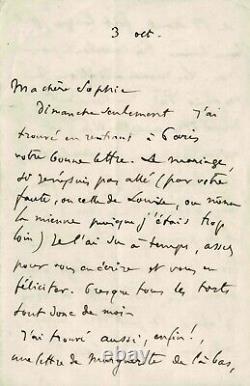 3 oct.
Ma chère Sophie
Dimanche seulement j'ai
trouvé en rentrant à Paris
votre bonne lettre. Le mariage,
où je n'suis pas allé (par votre
faute, ou celle de Louise, ou même
la mienne puisque j'étais trop
loin) je l'ai su à temps, assez
pour vous en écrire et vous en
féliciter. Presque tous les torts
sont donc de moi.
J'ai trouvé aussi, enfin!,
une lettre de Marguerite de là bas,